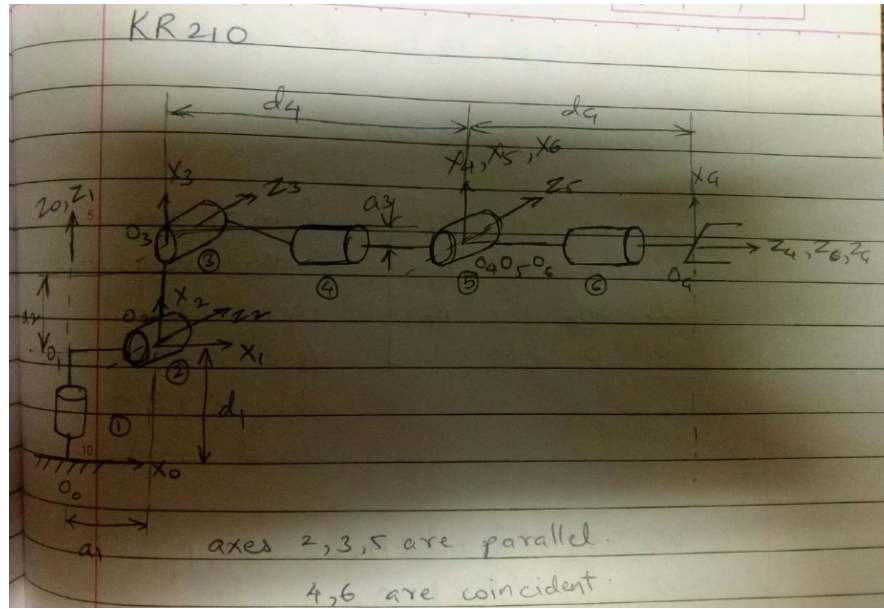 KR210
d4
dG
X4, X5, X6
X3
Z3
Z5
XG
Z0, Z1
a3
O3
③
④
⑤
O4 O5 O6
⑥
OG
Z4, Z6, ZG
X2
Z2
O2
O1
X1
②
d1
①
X0
O0
a1
axes 2, 3, 5 are parallel.
4, 6 are coincident.